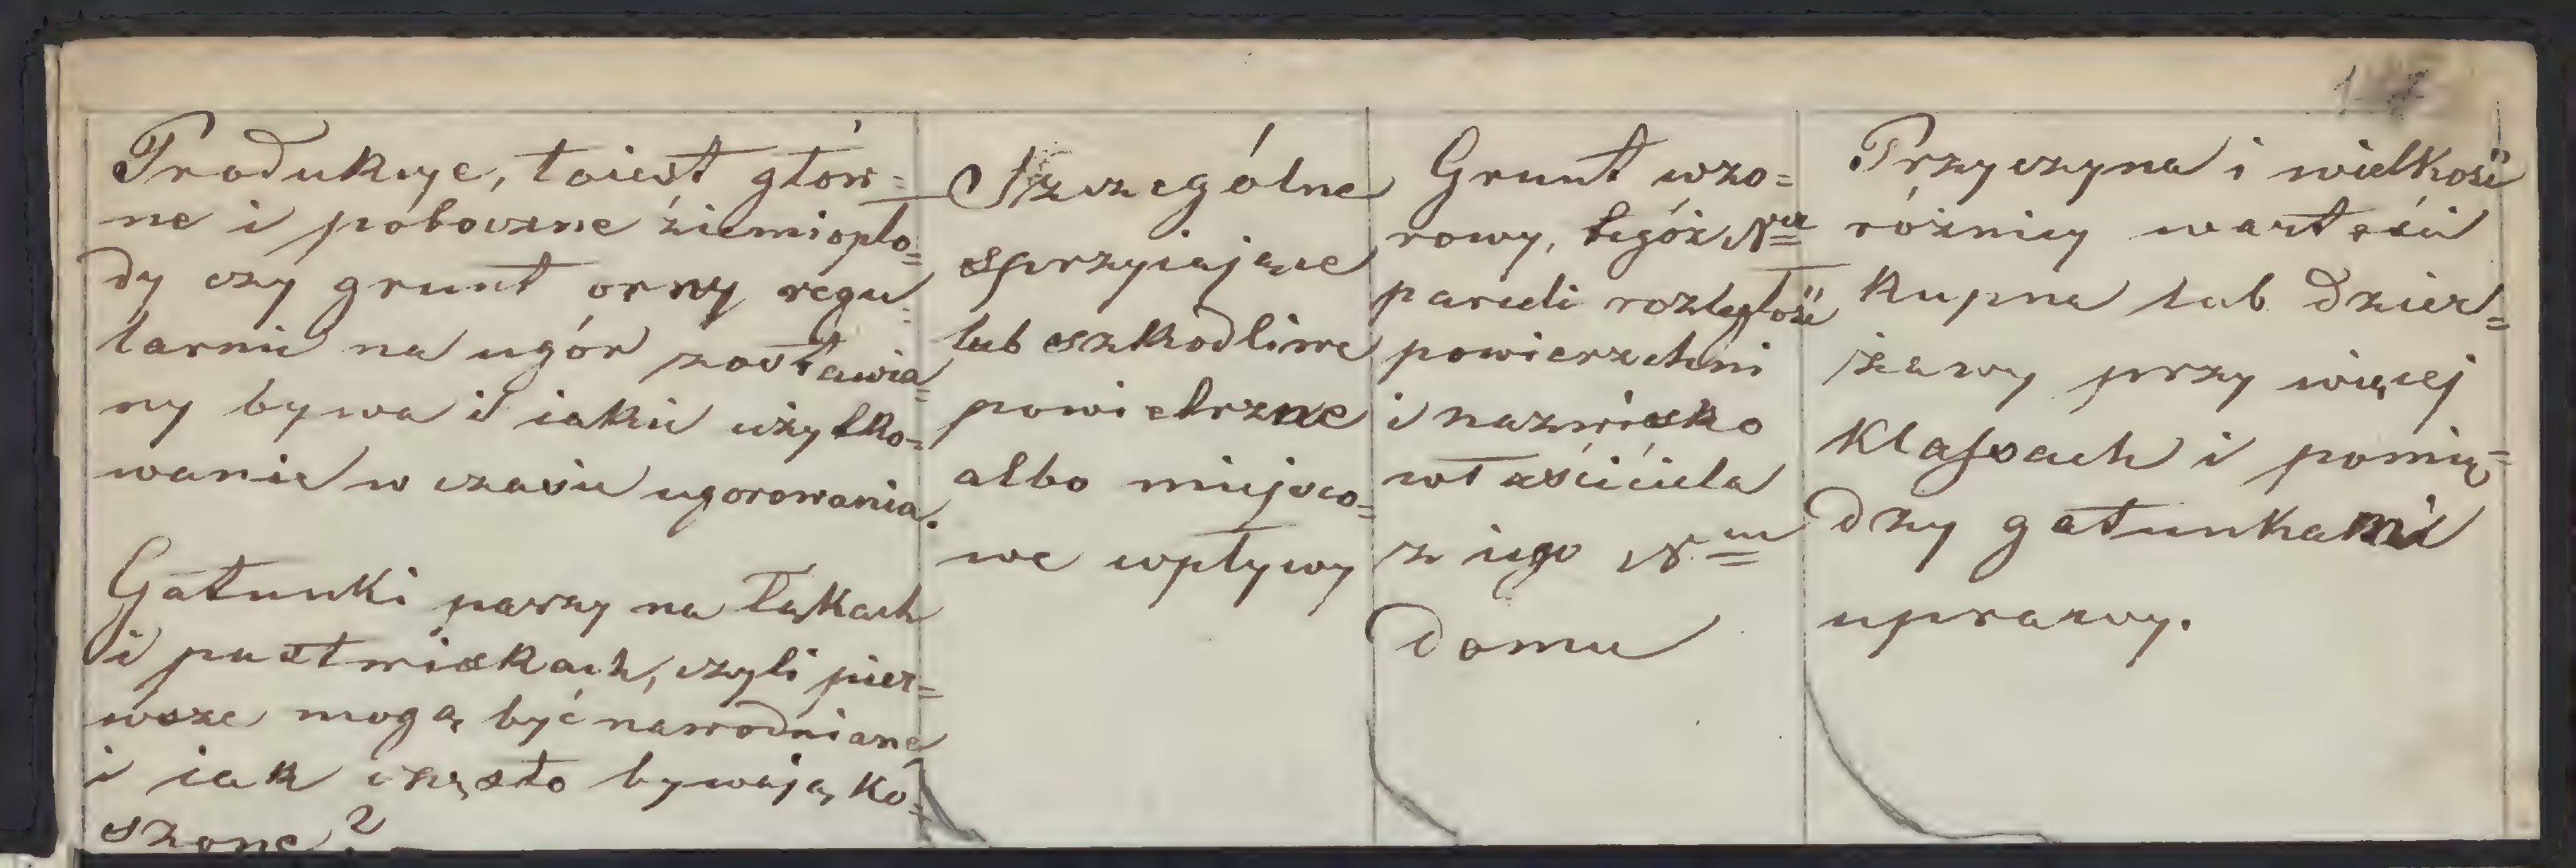 Produkcye, toiest głów=
ne i poboczne ziemiopło=
dy czy grunt orny regu=
larnie na ugór zostawia=
ny bywa i iakie użytko=
wanie w czasie ugorowania.
Gatunki paszy na łąkach
i pastwiskach, czyli pier=
wsze mogą być nawodniane
i iak często bywają ko=
szone?
Szczególne
sprzyiające
lub szkodliwe
powietrzne
albo miejsco=
we wpływy
Grunt wzo=
rowy, tegóż Ner
parceli rozległość
powierzchni
i nazwisko
właściciela
z iego Nem
domu
Przyczyna i wielkość
różnicy wartości
kupna lub dzier=
żawy przy więcej
klassach i pomię=
dzy gatunkami
uprawy.